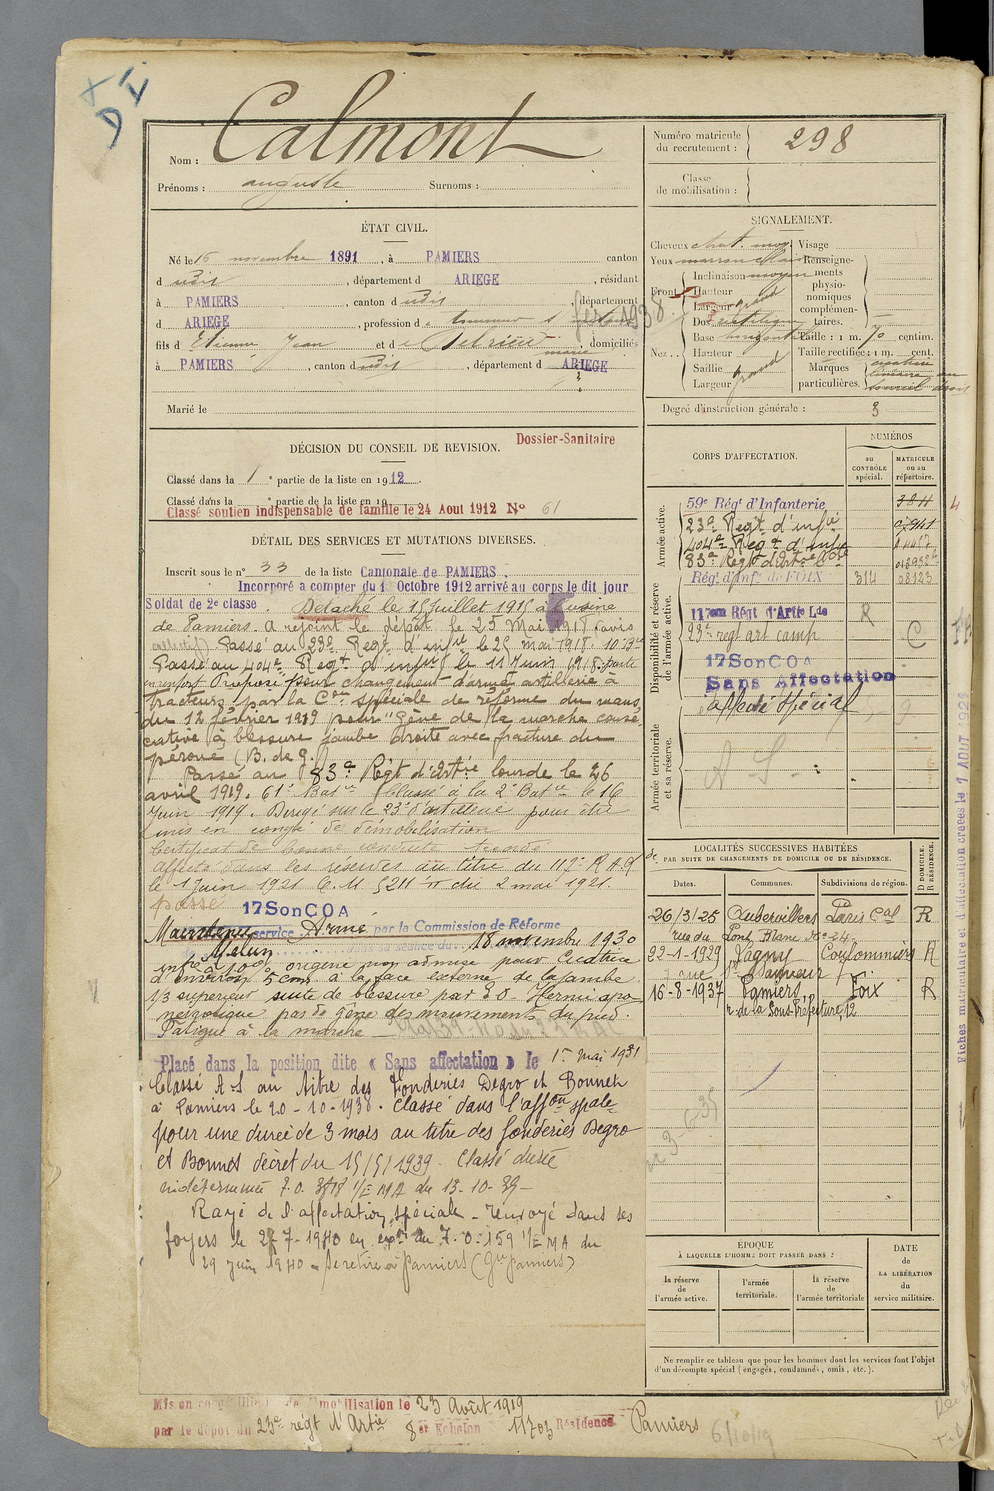 Calmont
Nom :
Prénoms : auguste Surnoms :
Numéro matricule du recrutement : 298
Classe de mobilisation :
ÉTAT CIVIL.
Né le 16 novembre 1891, à PAMIERS canton
d udit, département d ARIEGE, résidant
à PAMIERS, canton d udit, département
d ARIEGE, profession d
fils d Etienne Jean et d, domiciliés
à PAMIERS, canton d udit, département d ARIEGE
Marié le
SIGNALEMENT.
Cheveux chat. moy. Visage
Yeux marron clair Renseigne-
Inclinaison moyen ments
Front Hauteur physio-
Largeur grand nomiques
Dos rectiligne complémen-
Base horizontale taires.
Nez Hauteur
Saillie
Largeur grand
Taille : 1 m. 70 centim.
Taille rectifiée : 1 m. cent.
Marques particulières.
Degré d'instruction générale : 3
DÉCISION DU CONSEIL DE REVISION.
Dossier-Sanitaire
Classé dans la 1e partie de la liste en 1912
Classé dans la e partie de la liste en 19
Classé soutien indispensable de famille le 24 Aout 1912 No 61
DÉTAIL DES SERVICES ET MUTATIONS DIVERSES.
Inscrit sous le n° 33 de la liste Cantonale de PAMIERS.
Incorporé a compter du 1 Octobre 1912 arrivé au corps le dit jour
Soldat de 2e classe. Detaché le 15 Juillet 1915 à l'usine
de Pamiers. A rejoint le dépôt le 25 Mai 1918 (avis
collectif) Passé au 23e Regt d'infie le 25 mai 1918.
Passé au 404e Regt d'infie le 11 Juin 1918. parti
en renfort Proposé pour changement d'arme artillerie à
tracteurs par la Con spéciale de réforme du mans
du 12 février 1919 pour "gêne de la marche consé
cutive à blessure jambe droite avec fracture du
péroné (B. de g.)
Passé au 83e Régt d'Artie lourde le 26
avril 1919. 61e Batie Classé à la 2e Batie le 16
Juin 1919. Dirigé sur le 23e d'artillerie pour être
mis en congé de démobilisation
Certificat de bonne conduite accordé
Affecté dans les réserves au titre du 117e R A L
le 1 Juin 1921 C. M 5211 du 2 mai 1921.
passé 17SonCOA
Maintenu service Armé par la Commission de Réforme
Melun sa séance du 18 novembre 1930
infre à 10% origine non admise pour cicatrice
d'environ 5 cm à la face externe de la jambe
1/3 supérieur suite de blessure par E O. Hernie apo
névrotique pas de gêne des mouvements du pied.
Fatigue à la marche
Placé dans la position dite « Sans affectation » le 1er mai 1931
Classé A-S au titre des Fonderies Degro et Bonnet
à Pamiers le 20-10-1938. Classé dans l'affon spale
pour une durée de 3 mois au titre des fonderies Degro
et Bonnet décret du 15/5/1939. Classé durée
indéterminée 7.0. 3818 1/EMA du 13-10-39 -
Rayé de l'affectation spéciale - renvoyé dans ses
foyers le 27-7-1940 en expn du 7.0.159 1/EMA du
29 juin 1940 - Se retire à Pamiers (gde Pamiers)
CORPS D'AFFECTATION.
NUMÉROS
au CONTRÔLE spécial.
MATRICULE ou au répertoire.
Armée active.
59e Régt d'Infanterie
23e Regt d'infie
404e Regt d'infie
83e Regt d'Artie lde
Disponibilité et réserve de l'armée active.
Régt d'Infie de FOIX 314 08123
117eme Régt d'Artie Lde R
23e regt art camp C
17SonCOA
Sans Affectation
affecté spécial
Armée territoriale et sa réserve.
A S.
Fiches matriculaire et d'affectation créées le 1 AOUT
LOCALITÉS SUCCESSIVES HABITÉES
PAR SUITE DE CHANGEMENTS DE DOMICILE OU DE RÉSIDENCE.
D DOMICILE. R RÉSIDENCE.
Dates. Communes. Subdivisions de région.
26/3/25 Aubervilliers Paris Cal R
rue du Pont Blanc No 24
22-1-1929 Jagny Coulommiers R
16-8-1937 Pamiers Foix R
r. de la Sous-Préfecture, 12
ÉPOQUE
À LAQUELLE L'HOMME DOIT PASSER DANS :
la réserve de l'armée active.
l'armée territoriale.
la réserve de l'armée territoriale
DATE de LA LIBÉRATION du service militaire.
Ne remplir ce tableau que pour les hommes dont les services font l'objet
d'un décompte spécial (engagés, condamnés, omis, etc.).
Mis en congé de démobilisation le 23 Août 1919
par le dépôt du 23e regt d'Artie 8er Echelon 11703 Résidence Pamiers
6/10/19